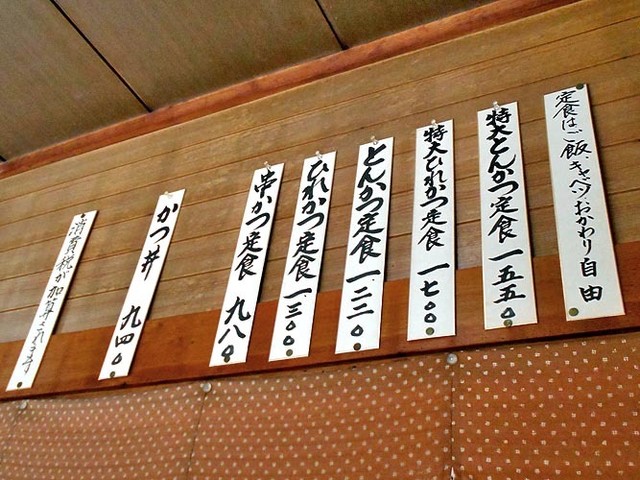 定食はご飯、キャベツおかわり自由
特大とんかつ定食 一五五〇
特大ひれかつ定食 一七〇〇
とんかつ定食 一、二二〇
ひれかつ定食 一、三〇〇
串かつ定食 九八〇
かつ丼 九四〇
消費税が加算されます